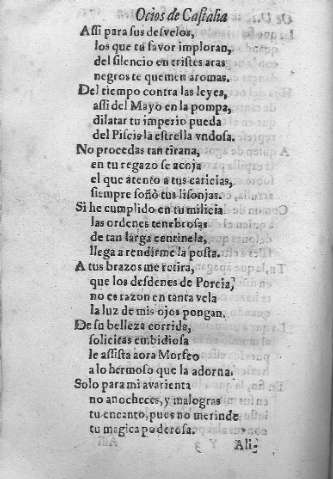 Ocios de Castalia
Assi para sus desvelos,
los que tu favor imploran,
del silencio en tristes aras
negros te quemen aromas.
Del tiempo contra las leyes,
assi del Mayo en la pompa,
dilatar tu imperio pueda
del Piscis la estrella vndosa.
No procedas tan tirana,
en tu regazo se acoja
el que atento a tus caricias,
siempre soñò tus lisonjas.
Si he cumplido en tu milicia
las ordenes tenebrosas
de tan larga centinela,
llega a rendirme la posta.
A tus brazos me retira,
que los desdenes de Porcia,
no es razon en tanta vela
la luz de mis ojos pongan.
De su belleza corrida,
solicitas embidiosa
le assista aora Morfeo
a lo hermoso que la adorna.
Solo para mi avarienta
no anocheces, y malogras
tu encanto, pues no me rinde
tu magica poderosa.
Ali-